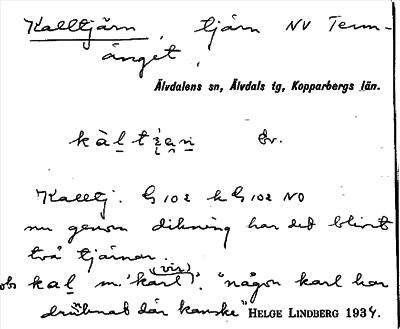 Kalltjärn, tjärn NV Term-
änget,
Älvdalens sn, Älvdals tg, Kopparbergs län.
kàltjan̥ Ӧr.
Kalltj. G 102 k G 102 NO
nu genom dikning har det blivit
två tjärnar.
obs kal m. 'karl (vir)'. "någon karl har
drunknat där kanske" HELGE LINDBERG 1934.